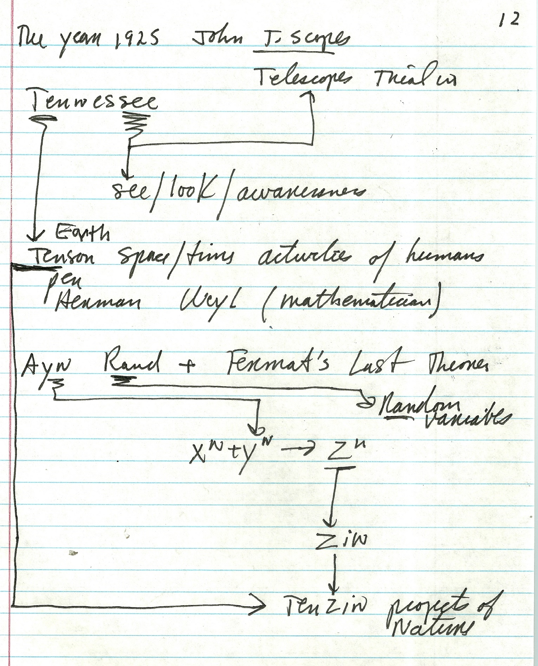 12
The year 1925 John T. Scopes
Telescopes Trial in
Tennessee
see/look/awareness
Earth
Tenson space/time activities of humans
pen
Herman Weyl (mathematician)
Ayn Rand + Fermat's Last Theorem
Random
variables
X^N + Y^N → Z^n
Zin
TenZin projects of
Nature